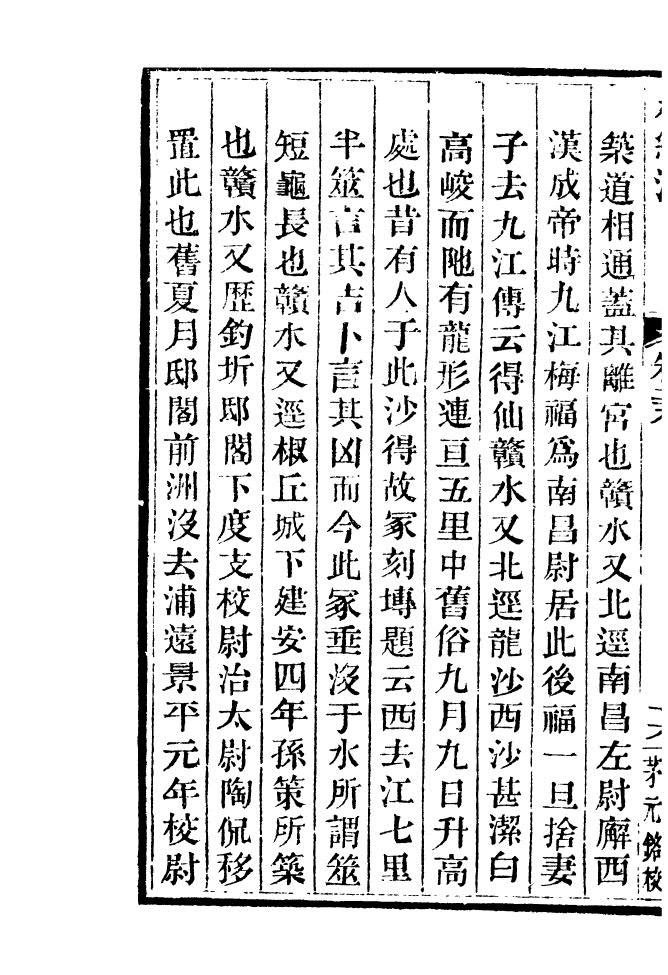 築道相通蓋其離宮也贛水又北逕南昌左尉廨西
漢成帝時九江梅福爲南昌尉居此後福一旦捨妻
子去九江傳云得仙贛水又北逕龍沙西沙甚潔白
高峻而阤有龍形連亘五里中舊俗九月九日升高
處也昔有人于此沙得故冢刻塼題云西去江七里
半筮言其吉卜言其凶而今此冢垂沒于水所謂筮
短龜長也贛水又逕椒丘城下建安四年孫策所築
也贛水又歷釣圻邸閣下度支校尉治太尉陶侃移
置此也舊夏月邸閣前洲沒去浦遠景平元年校尉
茅元銘校